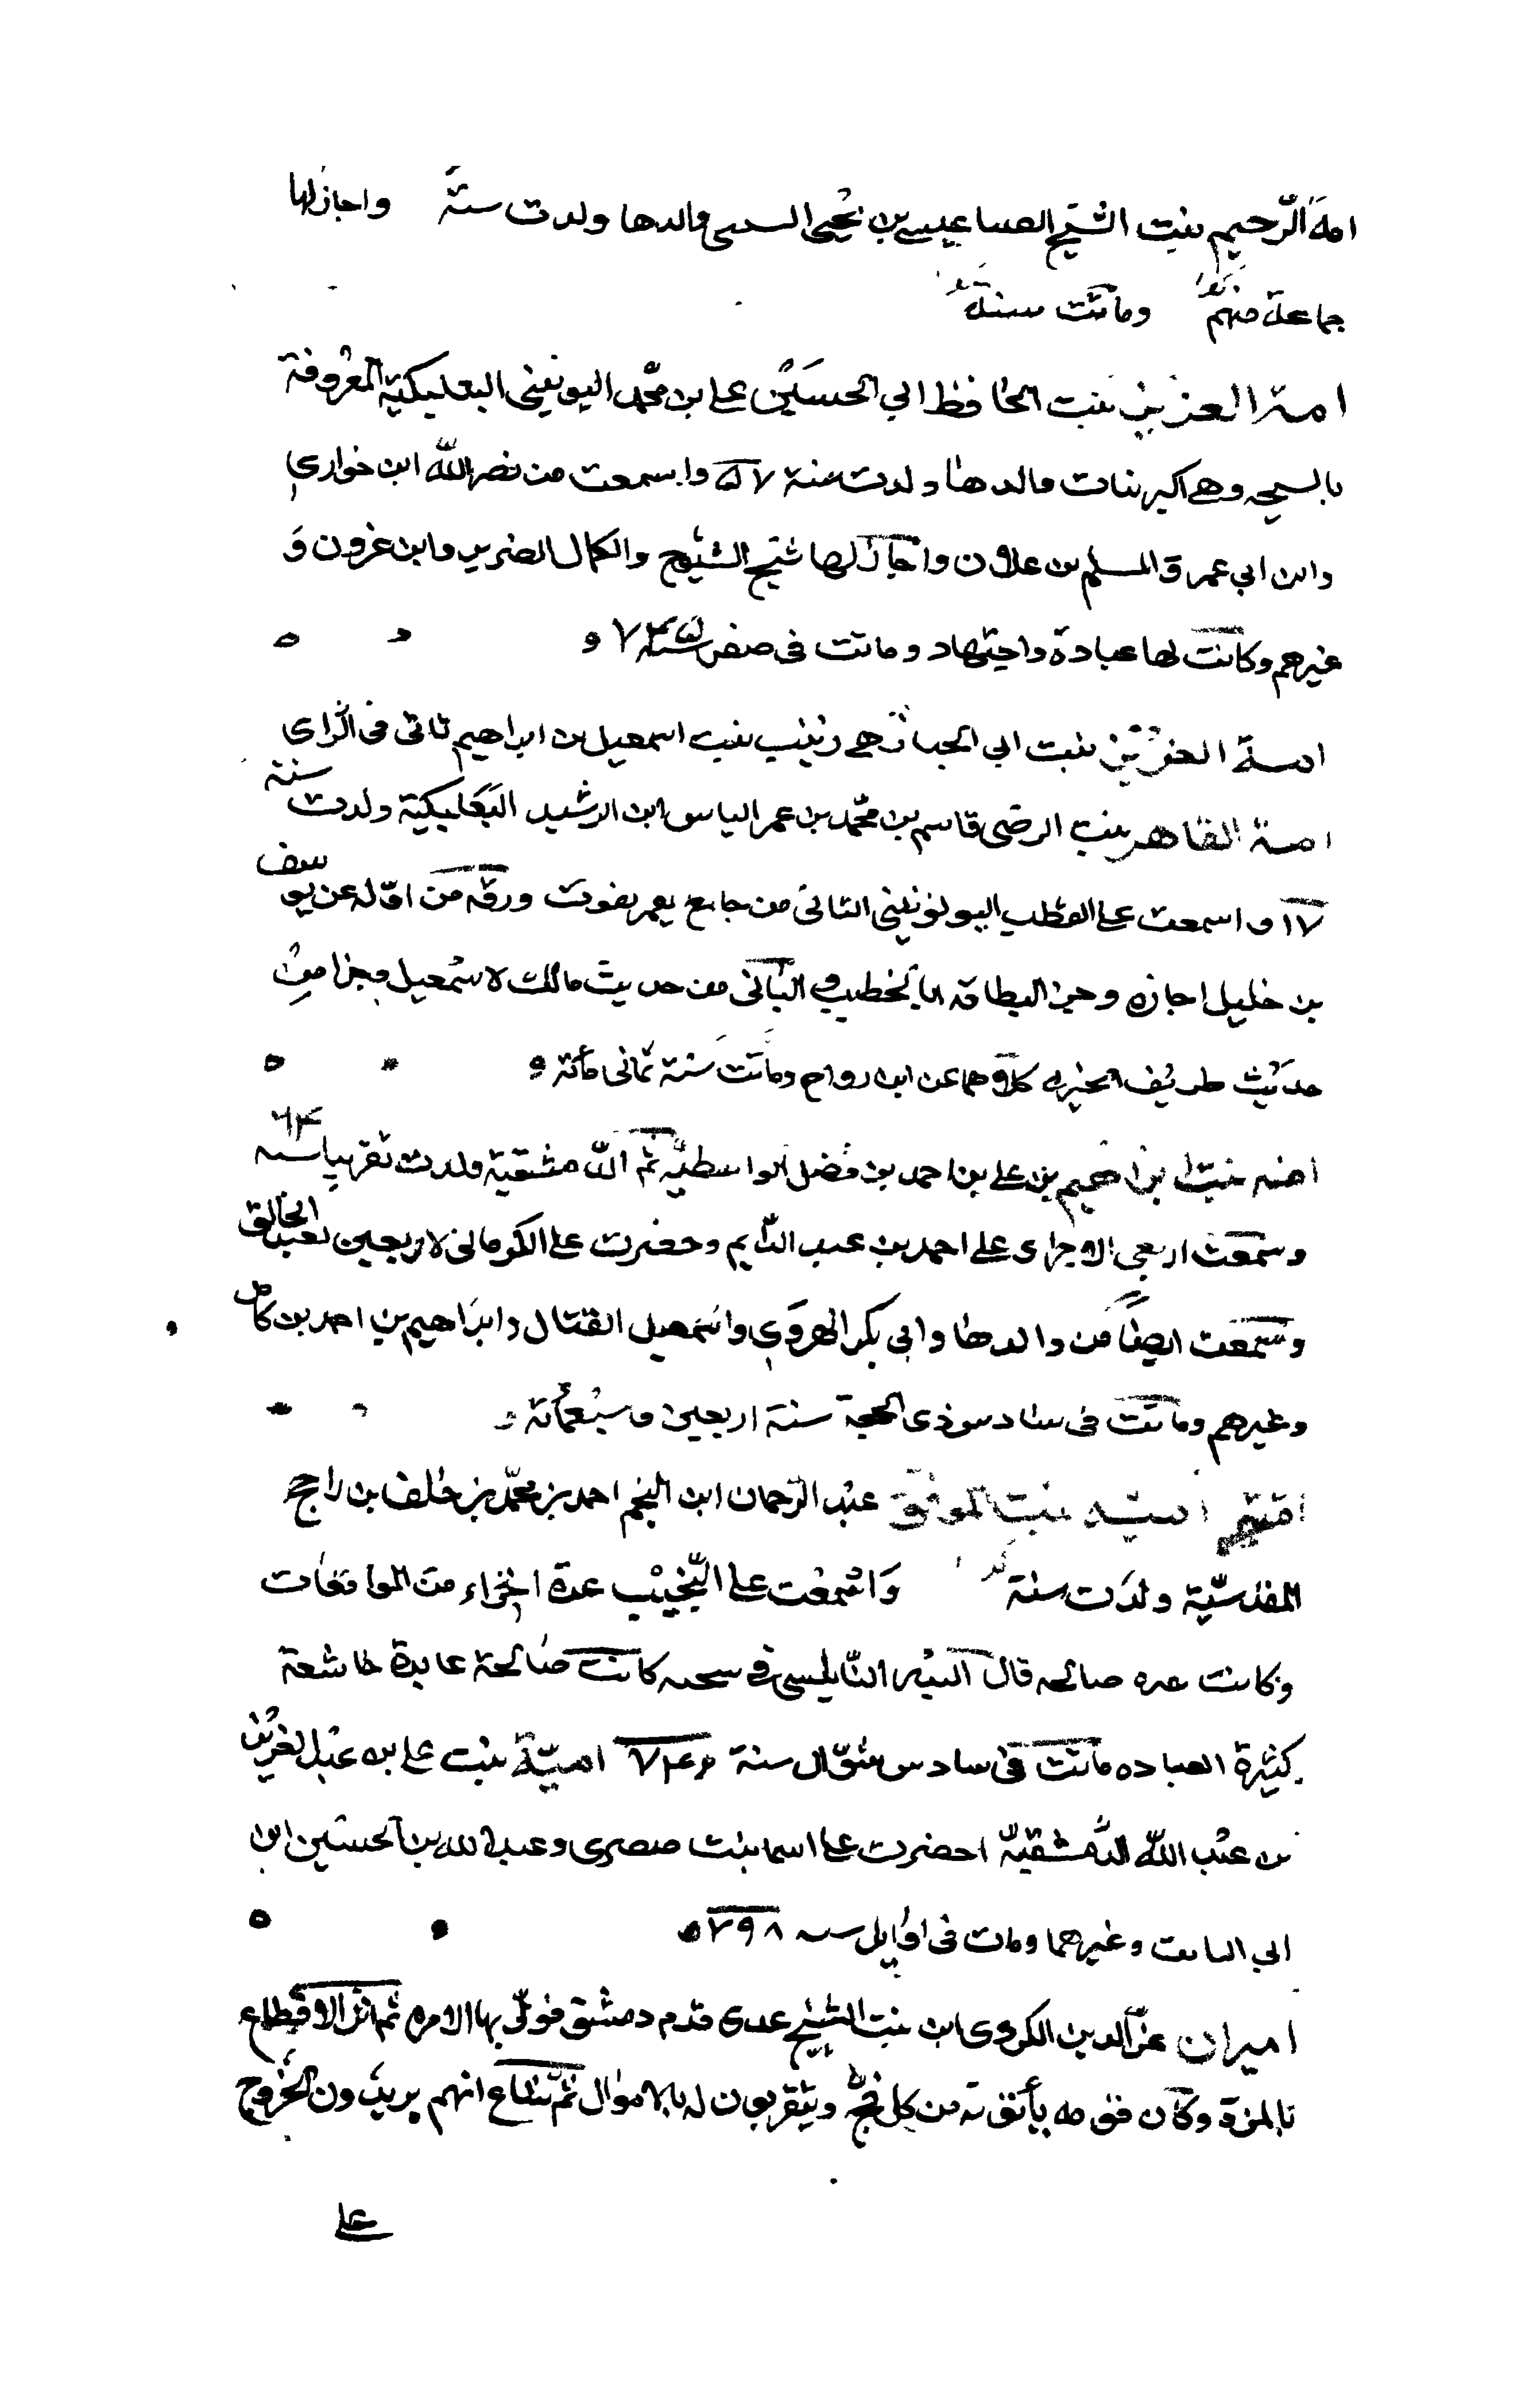 امة الرّحيم بنت الشيخ عيسى بن يحيى السبتى والدها ولدت سنة واجازلها
جماعة منهم وماتت سنة
امة العزيز بنت الحافظ ابي الحسين على بن محمّد اليونينى البعلبكية المعروفة
وهى اكبر بنات والدها ولدت سنة ٥٧ واسمعت من نصر الله ابن حوارى
وابن ابى عمر والمسلم بن علان واجاز لها شيخ الشيوخ والكمال الضرير وابن عزون و
غيرهم وكانت لها عبادة واجتهاد وماتت فى صفر سنة ٧٤٥
امة العزيز بنت ابى هى زينب بنت اسمعيل بن ابراهيم تاتى فى الزاى
امة القاهر بنت الرضى قاسم بن محمّد بن عمر الياس ابن الرشيد البعلبكية ولدت سنة
١٧ واسمعت على القطب الثانى من جامع يفوت ورقه من اوّله عن يوسف
بن خليل اجازه وحزء البطاقه والثانى من حديث مالك لاسمعيل وجزا من
حديث كلاهما عن ابن رواح وماتت سنة ثمانى مأئة
امنه بنت ابراهيم بن على بن احمد بن فضل الواسطيّه ثم الدّمشقية ولدت تقريبا سنه ٦٤
وسمعت اربعى الاجرى على احمد بن عبد الدّايم وحضرت على الكرمانى لاربعين لعبد الخالق
وسمعت ايضاً من والدها وابى بكر الهروى واسمعيل القتال وابراهيم بن احمد بن كامل
وغيرهم وماتت فى سادس ذى الحجة سنة اربعين وسبعمأئة
امنه بنت الموفق عبد الرّحمان ابن النجم احمد بن محمّد بن خلف بن راجح
المقدسيّة ولدت سنة واسمعت على النّجيب عدة اجزاء من الموافقات
وكانت صالحه قال النّابلسى فى كانت صالحة عابدة خاشعة
كثيرة العباده ماتت فى سادس شوّال سنة ٧٤٢ اميّة بنت على بن عبد العزيز
بن عبد اللّه الدّمشقيّه احضرت على اسما بنت صصرى وعبد الله بن الحسين ابن
ابى التائب وغيرهما ومات فى اوايل سنه ٧٩٨
اميران عزّ الدين الكردى ابن بنت الشيخ عدى قدم دمشق فولّى بها الامره ثم اثر الاقطاع
بالمزة وكان قومه يأتونه من كل فجّ ويتقربون له بالاموال ثم شاع انهم يريدون الخروج
على